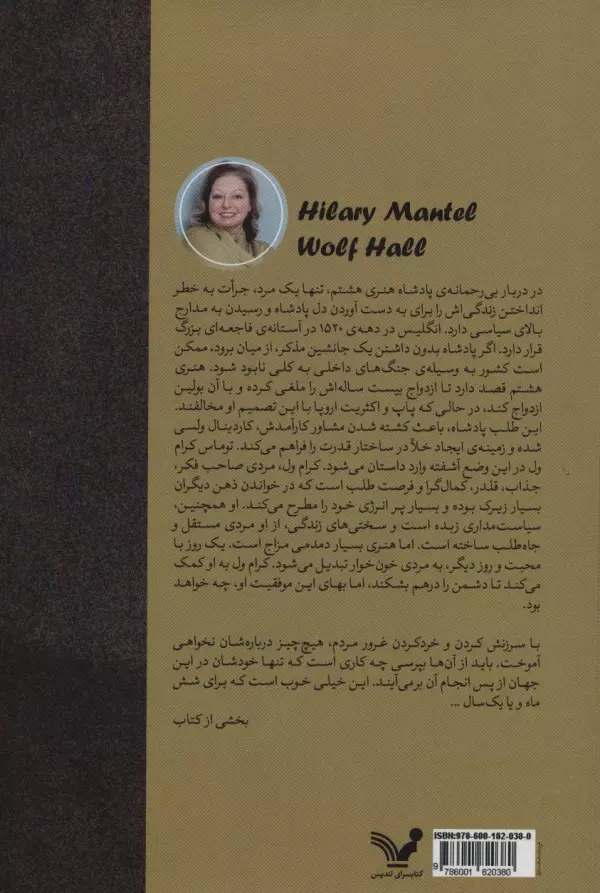 Hilary Mantel
Wolf Hall
در دربار بی‌رحمانه‌ی پادشاه هنری هشتم، تنها یک مرد، جرأت به خطر
انداختن زندگی‌اش را برای به دست آوردن دل پادشاه و رسیدن به مدارج
بالای سیاسی دارد. انگلیس در دهه‌ی ۱۵۲۰ در آستانه‌ی فاجعه‌ای بزرگ
قرار دارد. اگر پادشاه بدون داشتن یک جانشین مذکر، از میان برود، ممکن
است کشور به وسیله‌ی جنگ‌های داخلی به کلی نابود شود. هنری
هشتم قصد دارد تا ازدواج بیست ساله‌اش را ملغی کرده و با آن بولین
ازدواج کند، در حالی که پاپ و اکثریت اروپا با این تصمیم او مخالفند.
این طلب پادشاه، باعث کشته شدن مشاور کارآمدش، کاردینال ولسی
شده و زمینه‌ی ایجاد خلأ در ساختار قدرت را فراهم می‌کند. توماس کرام
ول در این وضع آشفته وارد داستان می‌شود. کرام ول، مردی صاحب فکر،
جذاب، قلدر، کمال‌گرا و فرصت طلب است که در خواندن ذهن دیگران
بسیار زیرک بوده و بسیار پر انرژی خود را مطرح می‌کند. او همچنین،
سیاست‌مداری زبده است و سختی‌های زندگی، از او مردی مستقل و
جاه‌طلب ساخته است. اما هنری بسیار دمدمی مزاج است. یک روز با
محبت و روز دیگر، به مردی خون‌خوار تبدیل می‌شود. کرام ول به او کمک
می‌کند تا دشمن را درهم بشکند، اما بهای این موفقیت او، چه خواهد
بود.
با سرزنش کردن و خردکردن غرور مردم، هیچ‌چیز درباره‌شان نخواهی
آموخت. باید از آن‌ها بپرسی چه کاری است که تنها خودشان در این
جهان از پس انجام آن برمی‌آیند. این خیلی خوب است که برای شش
ماه و یا یک‌سال ...
بخشی از کتاب
ISBN:978-600-182-038-0
9 786001 820380
کتابسرای تندیس